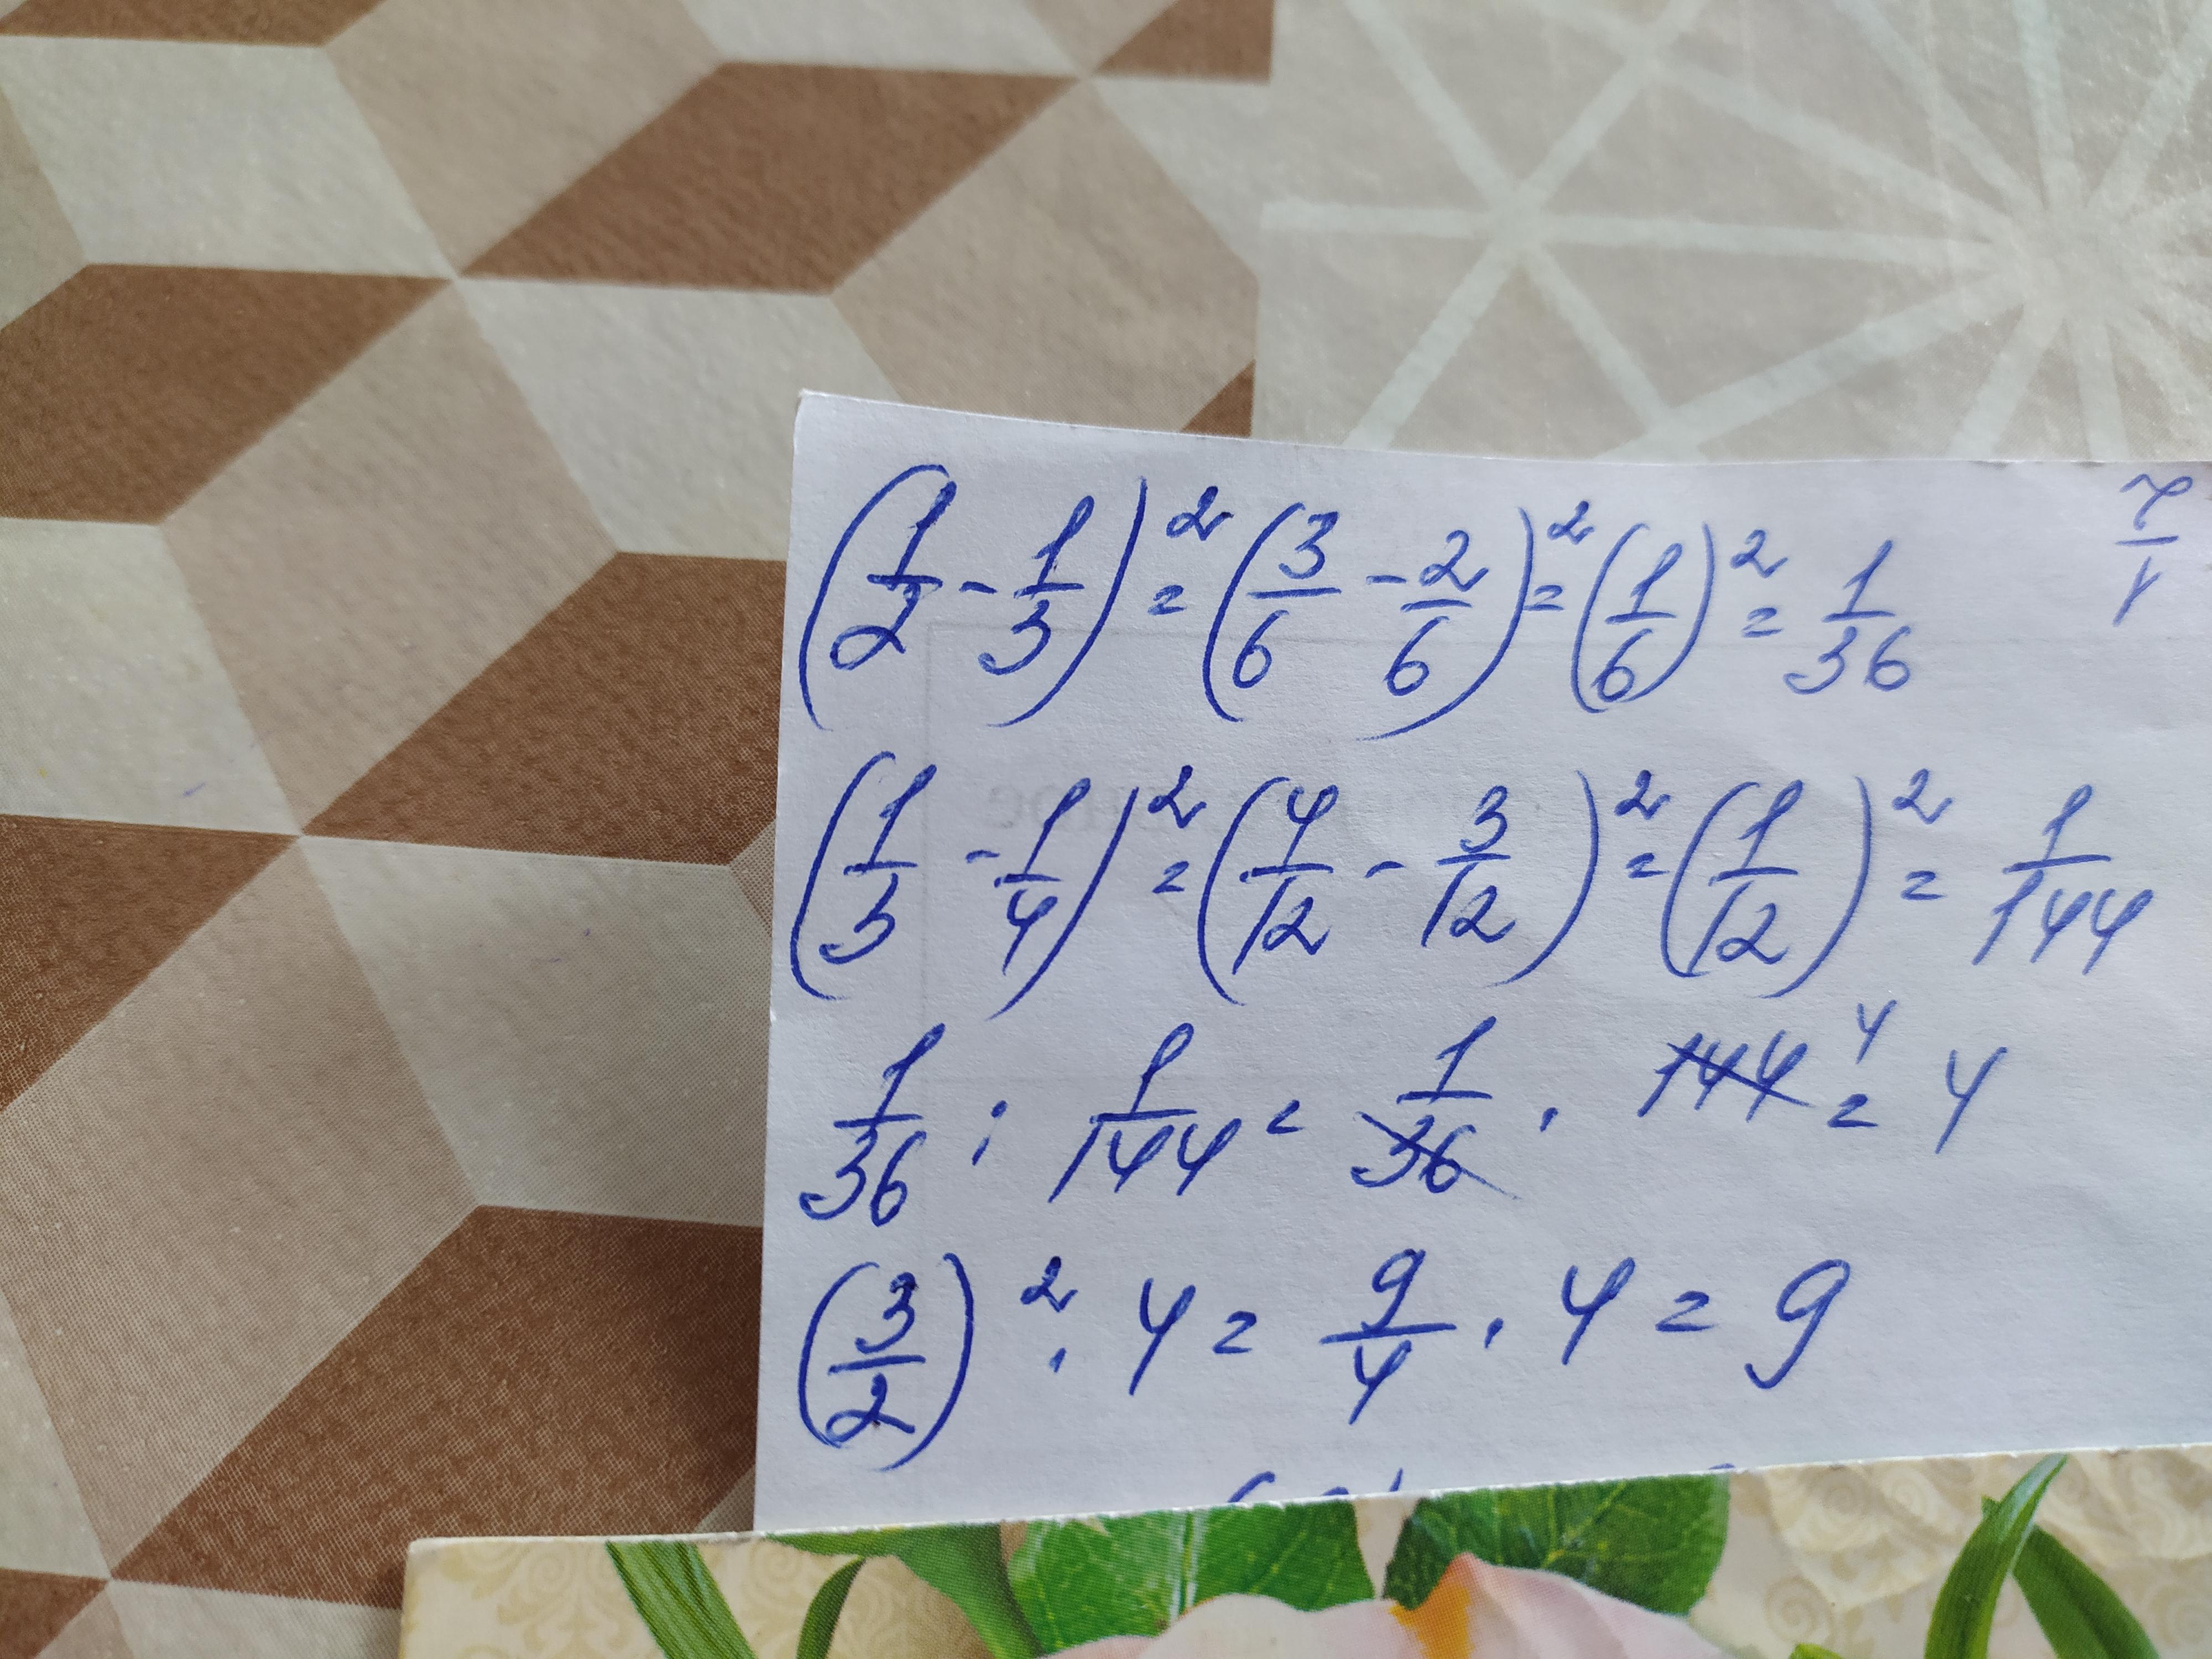 (1/2 - 1/3)² = (3/6 - 2/6)² = (1/6)² = 1/36
(1/3 - 1/4)² = (4/12 - 3/12)² = (1/12)² = 1/144
1/36 : 1/144 = 1/36 · 144 ⁴ = 4
(3/2)² · 4 = 9/4 · 4 = 9